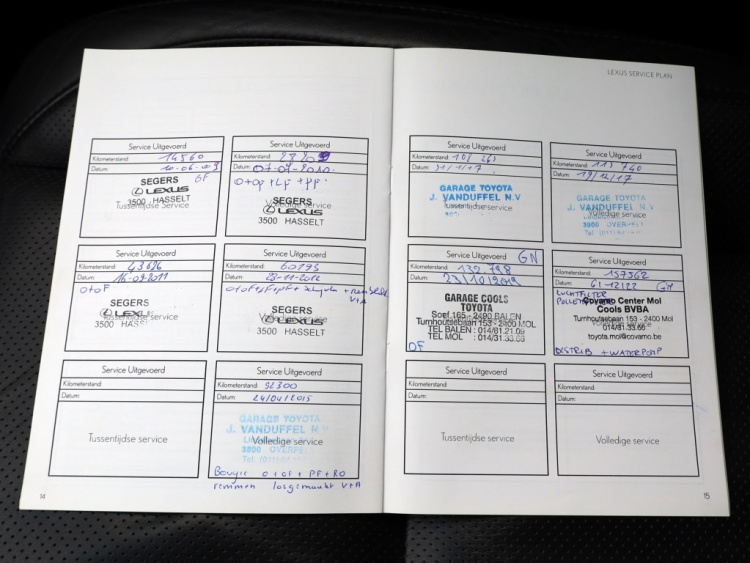 LEXUS SERVICE PLAN
Service Uitgevoerd
Kilometerstand: 14560
Datum:
OF
SEGERS
LEXUS
3500 HASSELT
Tussentijdse service
Service Uitgevoerd
Kilometerstand:
Datum: 07-07-2010
SEGERS
LEXUS
3500 HASSELT
Volledige service
Service Uitgevoerd
Kilometerstand: 43626
Datum: 16-09-2011
O+OF
SEGERS
LEXUS
3500 HASS
Tussentijdse service
Service Uitgevoerd
Kilometerstand: 60795
Datum: 23-11-2012
V+A
SEGERS
LEXUS
3500 HASSELT
Volledige service
Service Uitgevoerd
Kilometerstand:
Datum:
Tussentijdse service
Service Uitgevoerd
Kilometerstand:
Datum: 24/04/2015
GARAGE TOYOTA
J. VANDUFFEL N.V
Volledige service
3900 OVERPE
Bougie O+OF+PF+RO
remmen losgemaakt V+A
14
Service Uitgevoerd
Kilometerstand:
Datum:
GARAGE TOYOTA
J. VANDUFFEL N.V
Tussentijdse service
Service Uitgevoerd
Kilometerstand: 113740
Datum: 19/12/17
GARAGE TOYOTA
J. VANDUFFEL N.V
Volledige service
3900 OVERPE
Service Uitgevoerd
GN
Kilometerstand: 132798
Datum: 23/10/2019
GARAGE COOLS
TOYOTA
Soef 165 - 2490 BALEN
Turnhoutsebaan 153 - 2400 MOL
TEL BALEN : 014/81.21.09
TEL MOL : 014/31.33.66
OF
Service Uitgevoerd
Kilometerstand: 157562
Datum: 6/12/22 GN
LUCHTFILTER
Covamo Center Mol
Cools BVBA
Turnhoutsebaan 153 - 2400 Mol
014/31.33.66
toyota.mol@covamo.be
DISTRIB + WATERPOMP
Service Uitgevoerd
Kilometerstand:
Datum:
Tussentijdse service
Service Uitgevoerd
Kilometerstand:
Datum:
Volledige service
15